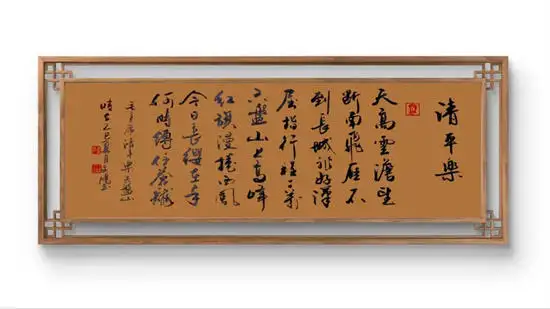 清平樂
天高雲澹望
斷南飛雁不
到長城非好漢
屈指行程二萬
六盤山上高峰
紅旗漫捲西風
今日長纓在手
何時縛住蒼龍
清平樂六盤山
乙巳夏月